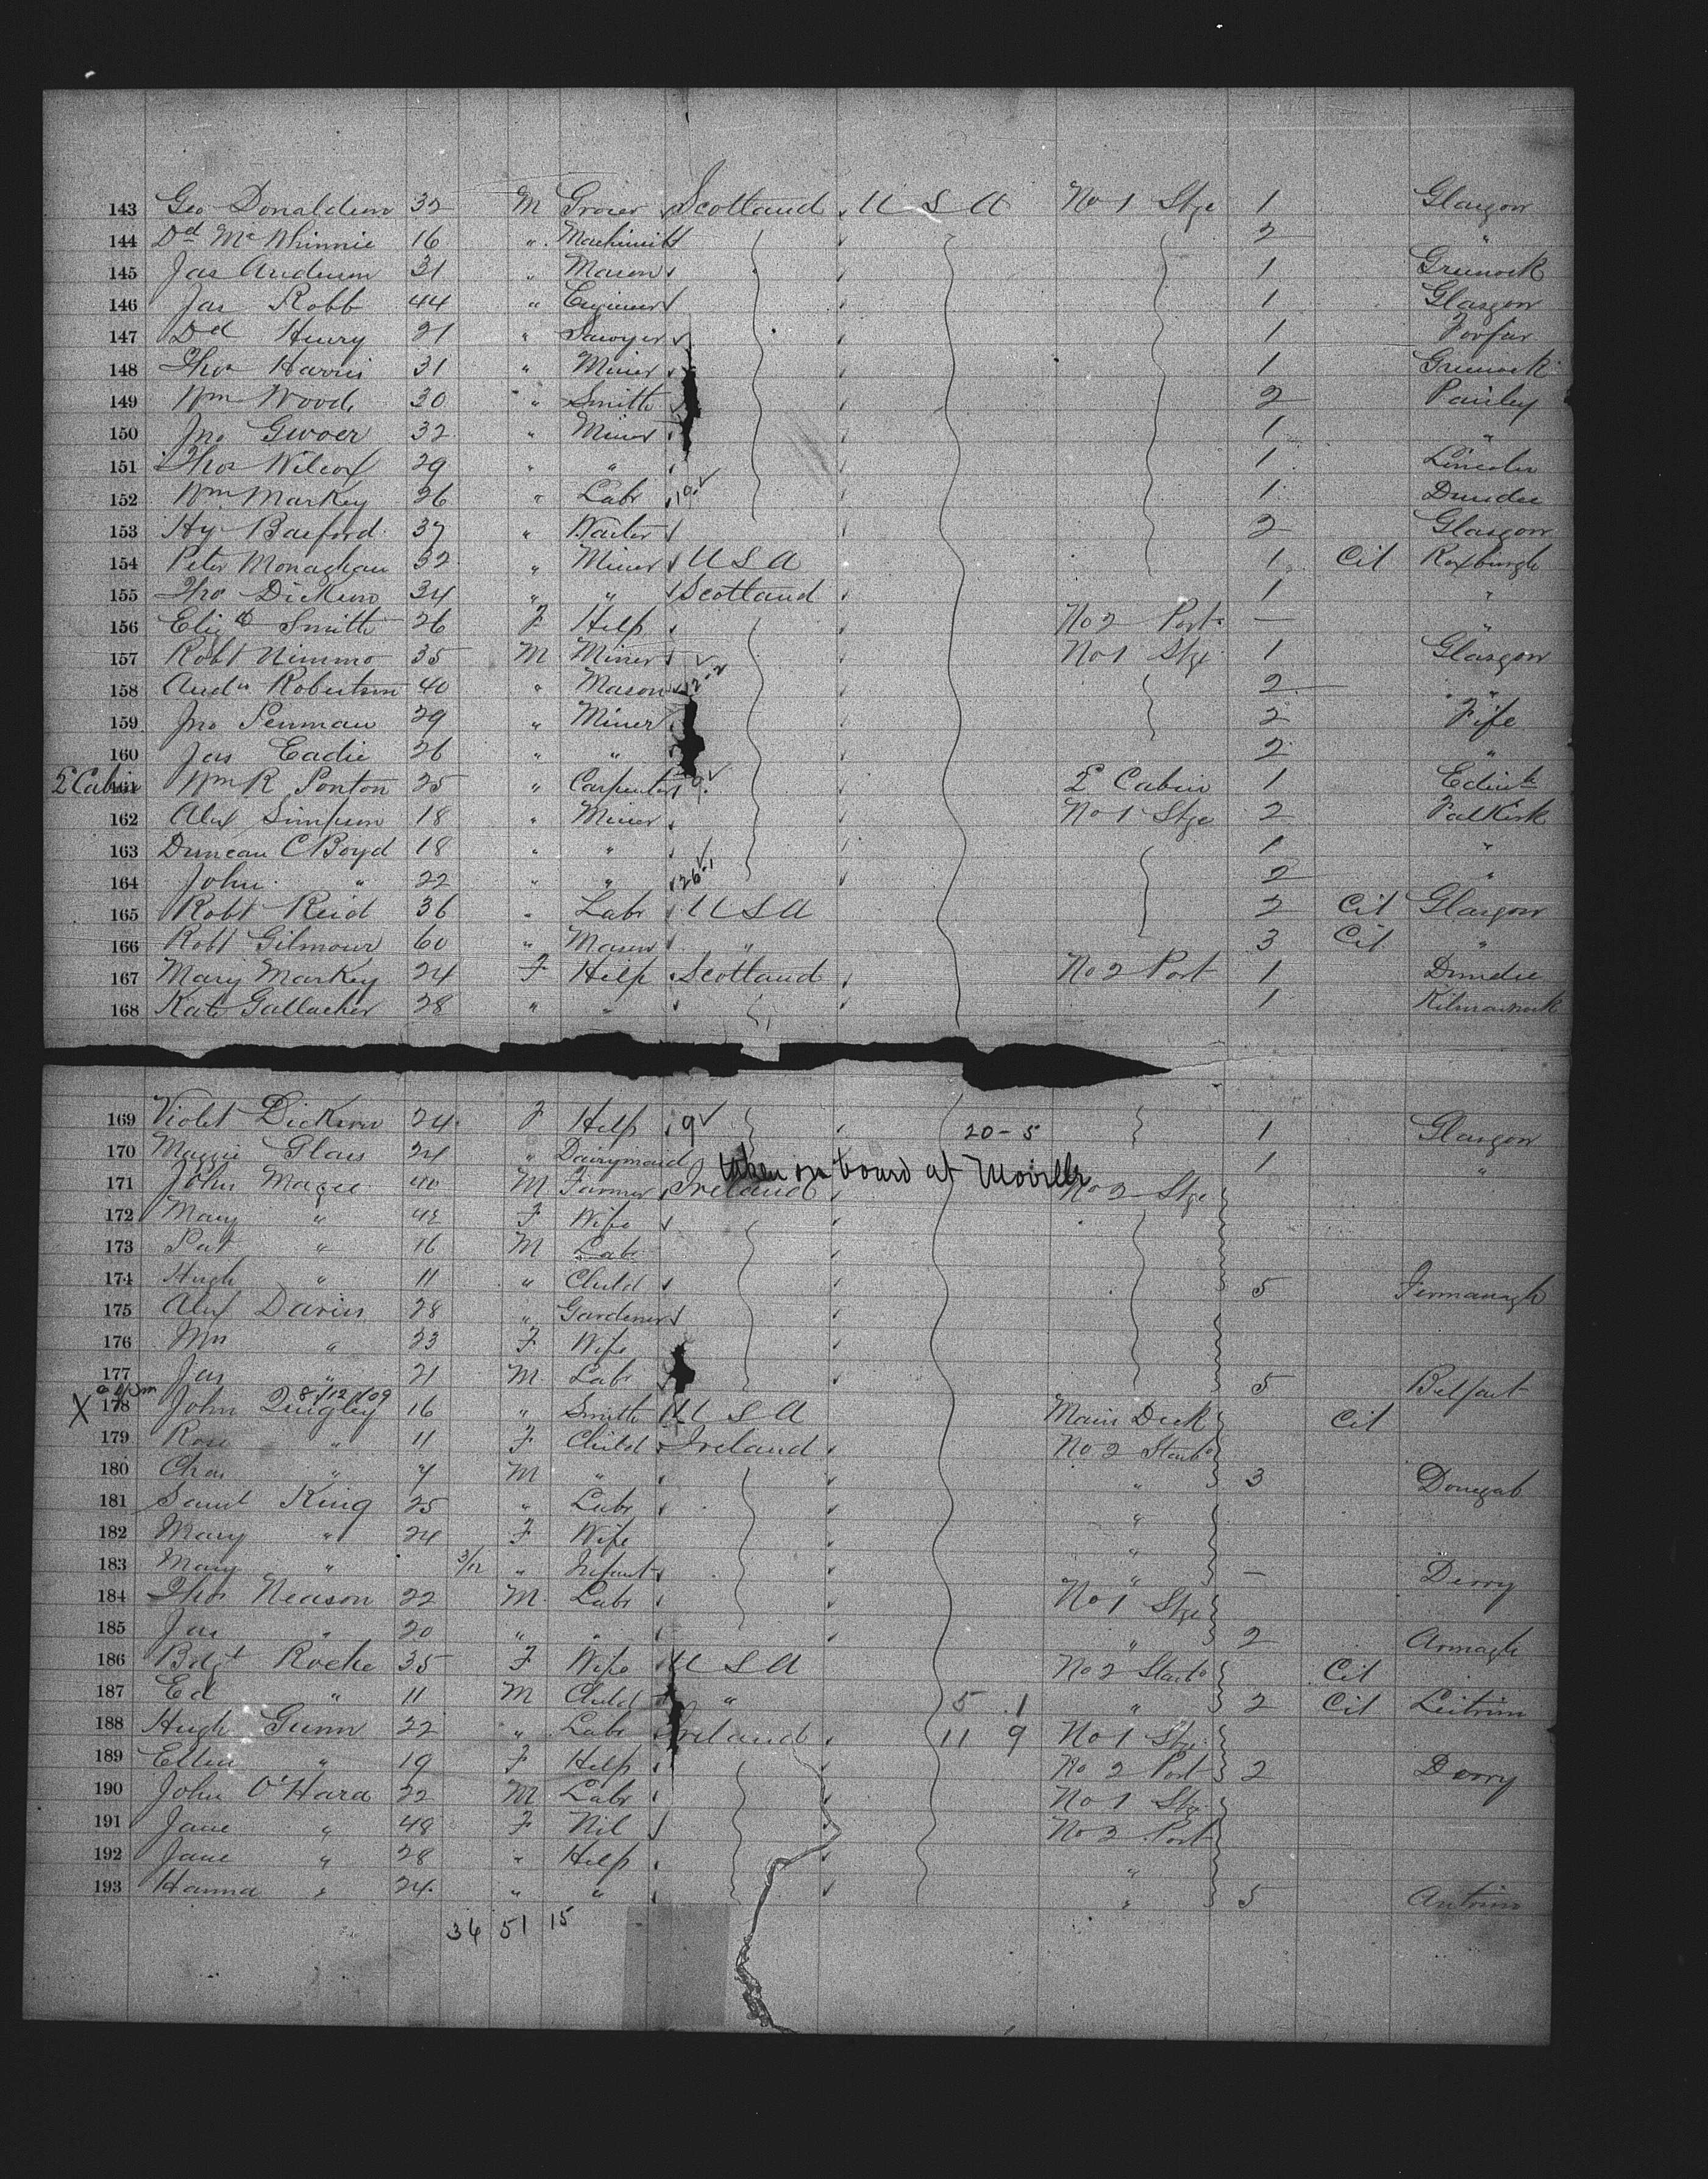 143 Geo Donaldson 32 M Grocer Scotland U S A No 1 Stge 1 Glasgow
144 Dd McWhinnie 16 " Machinist 2 "
145 Jas Anderson 31 " Mason 1 Greenock
146 Jas Robb 44 " Engineer 1 Glasgow
147 Dd Henry 21 " Sawyer 1 Forfar
148 Thos Harris 31 " Miner 1 Greenock
149 Wm Wood 30 " Smith 2 Paisley
150 Jno 32 " Miner 1 "
151 Thos Wilcox 29 " " 1 Lincoln
152 Wm Markey 26 " Labr 10 1 Dundee
153 Hy Basford 37 " Waiter 2 Glasgow
154 Peter Monaghan 32 " Miner U S A 1 Cit Roxburgh
155 Tho Dickson 34 " " Scotland 1 "
156 Elizth Smith 26 F Help No 2 Port — "
157 Robt Nimmo 35 M Miner No 1 Stge 1 Glasgow
158 Andw Robertson 40 " Mason 12-2 2 "
159 Jno Penman 29 " Miner 2 Fife
160 Jas Eadie 26 " " 2 "
2d Cabin 161 Wm R Ponton 25 " Carpenter 9 2d Cabin 1 Edinb
162 Alex Simpson 18 " Miner No 1 Stge 2 Falkirk
163 Duncan C Boyd 18 " " 1 "
164 John " 22 " " 26-1 2 "
165 Robt Reid 36 " Labr U S A 2 Cit Glasgow
166 Robt Gilmour 60 " Mason " 3 Cit "
167 Mary Markey 24 F Help Scotland No 2 Port 1 Dundee
168 Kate Gallacher 28 " " 1 Kilmarnock
169 Violet Dickson 24 F Help 9 20-5 1 Glasgow
170 Maggie Glass 24 " Dairymaid 1 "
taken on board at Moville
171 John Magee 40 M Farmer Ireland No 2 Stge
172 Mary " 42 F Wife
173 Pat " 16 M Labr
174 Hugh " 11 " Child 5 Fermanagh
175 Alex Davies 28 " Gardener
176 Mrs " 23 F Wife
177 Jas " 21 M Labr 5 Belfast
8/12/09
X 178 John Quigley 16 " Smith U S A Main Deck Cit
179 Rose " 11 F Child Ireland No 2 Starbd
180 Chas " 7 M " " 3 Donegal
181 Saml King 25 " Labr "
182 Mary " 24 F Wife "
183 Mary " 3/12 " Infant " — Derry
184 Thos Neason 22 M Labr No 1 Stge
185 Jas " 20 " " " 2 Armagh
186 Bdgt Roche 35 F Wife U S A No 2 Starbd Cit
187 Ed " 11 M Child " 5 1 " 2 Cit Leitrim
188 Hugh Gunn 22 " Labr Ireland 11 9 No 1 Stge
189 Ellen " 19 F Help No 2 Port 2 Derry
190 John O'Hara 22 M Labr No 1 Stge
191 Jane " 48 F Nil No 2 Port
192 Jane " 28 " Help "
193 Hanna " 24 " " " 5 Antrim
34 51 15